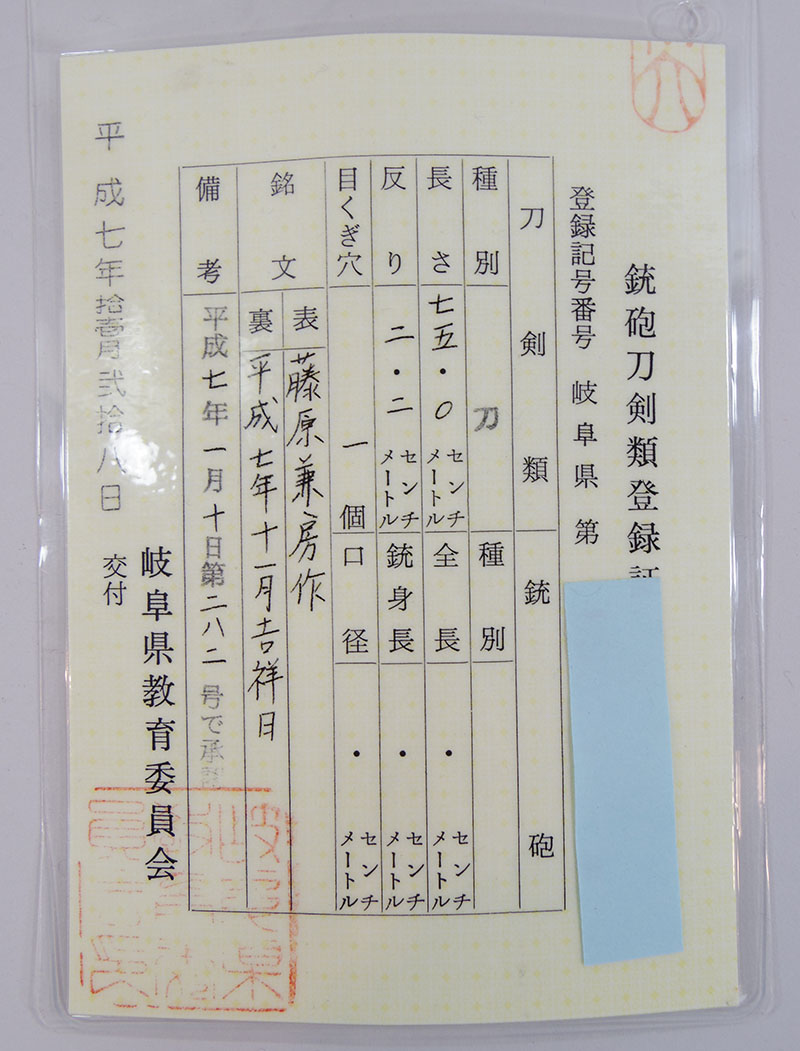 銃砲刀剣類登録証
登録記号番号 岐阜県 第
刀剣類 銃砲
種別 刀 種別
長さ 七五・〇 センチメートル 全長 ・ センチメートル
反り 二・二 センチメートル 銃身長 ・ センチメートル
目くぎ穴 一個 口径 ・ センチメートル
銘文 表 藤原兼房作
裏 平成七年十一月吉祥日
備考 平成七年一月十日第二八二号で承認
岐阜県教育委員会
交付
平成七年拾壱月弐拾八日